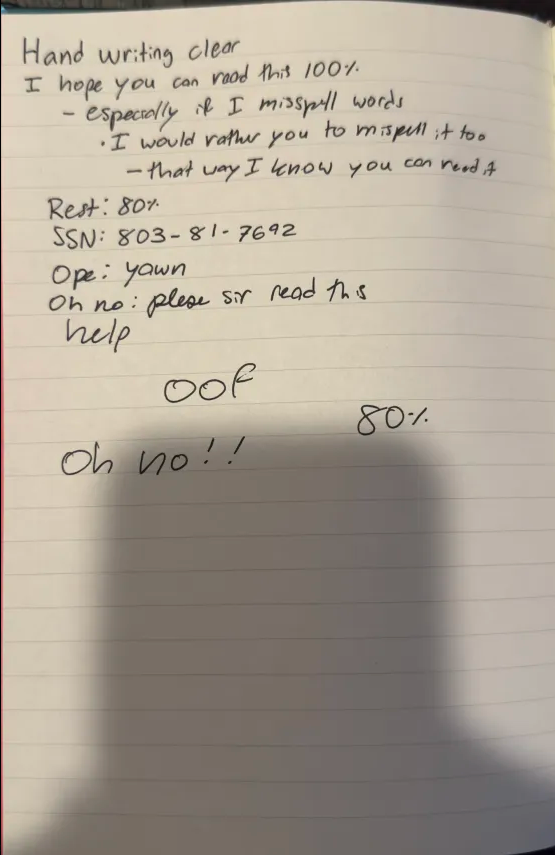 Hand writing clear
I hope you can read this 100%
- especially if I misspell words
· I would rather you to mispell it too
- that way I know you can read it
Rest: 80%
SSN: 803-81-7692
Ope: yawn
Oh no: plese sir read this
help
OOF
80%
Oh no!!